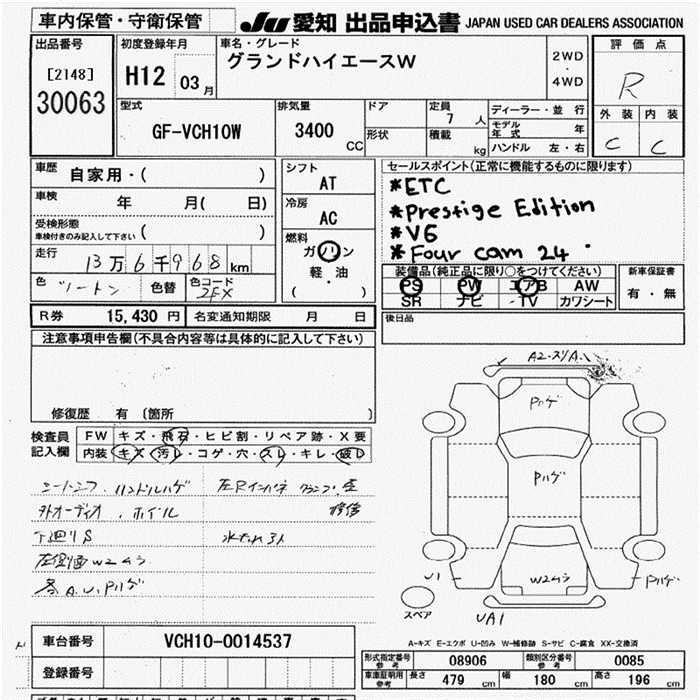 車内保管・守衛保管
JU 愛知 出品申込書 JAPAN USED CAR DEALERS ASSOCIATION
出品番号
[2148]
30063
初度登録年月
H12 03月
車名・グレード
グランドハイエースW
2WD
・
4WD
評価点
R
外装 内装
C C
型式
GF-VCH10W
排気量
3400 CC
ドア
形状
定員
7 人
積載 kg
ディーラー・並行
モデル年式 年
ハンドル 左・右
車歴
自家用・( )
車検 年 月( 日)
受検形態
車検付きのみ記入して下さい ( )
走行 13万6千968km
色 ツートン 色替 色コード 2FX
シフト
AT
冷房
AC
燃料
ガソリン
軽・油
( )
セールスポイント(正常に機能するものに限ります)
*ETC
*Prestige Edition
*V6
*Four cam 24
装備品(純正品に限り○をつけてください)
PS PW エアB AW
SR ナビ TV カワシート
新車保証書
有・無
R券 15,430円 名変通知期限 月 日
後日品
注意事項申告欄(不具合内容等は具体的に記入して下さい)
修復歴 有 〔箇所 〕
検査員記入欄
FW キズ・飛石・ヒビ割・リペア跡・X要
内装 キズ・汚レ・コゲ・穴・スレ・キレ・破レ
外オーディオ . ホイル
下廻りS
左側面W2ムラ
各A.U.Pハゲ
A2.スリA.
Pハゲ
Pハゲ
W2ムラ
U1
Pハゲ
スペア
UA1
A-キズ E-エクボ U-凹み W-補修跡 S-サビ C-腐食 XX-交換済
車台番号 VCH10-0014537
登録番号
形式指定番号 参考 08906 類別区分番号 参考 0085
車庫証明用 参考 長さ 479 cm 幅 180 cm 高さ 196 cm